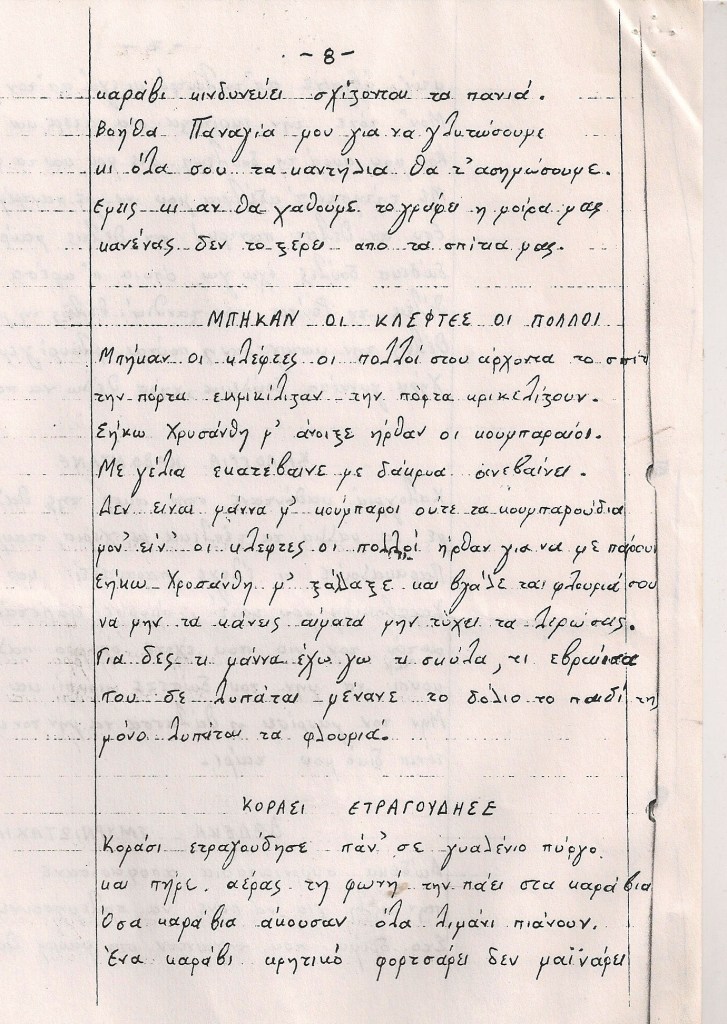 - 8 -
καράβι κινδυνεύει σχίζονται τα πανιά.
Βοήθα Παναγία μου για να γλυτώσουμε
κι όλα σου τα καντήλια θα τ' ασημώσουμε.
Εμείς κι αν θα χαθούμε το γράφει η μοίρα μας
κανένας δεν το ξέρει απο τα σπίτια μας.
ΜΠΗΚΑΝ ΟΙ ΚΛΕΦΤΕΣ ΟΙ ΠΟΛΛΟΙ
Μπήκαν οι κλέφτες οι πολλοί στου άρχοντα το σπίτ
την πόρτα την πόρτα κρικελίζουν.
Σήκω Χρυσάνθη μ' άνοιξε ήρθαν οι κουμπαραίοι.
Με γέλια εκατέβαινε με δάκρυα ανεβαίνει.
Δεν είναι μάννα μ' κούμπαροι ούτε τα κουμπαρούδια
μον' είν' οι κλέφτες οι πολλοί ήρθαν για να με πάρουν
Σήκω Χρυσάνθη μ' ξάλλαξε και βγάλε ται φλουριά σου
να μην τα κάνεις αίματα μην τύχει τα λερώσεις.
Για δες τι μάννα έχω γω τι σκύλα, τι εβραίισα
που δε λυπάται μένανε το δόλιο το παιδί της
μόνο λυπάται τα φλουριά.
ΚΟΡΑΣΙ ΕΤΡΑΓΟΥΔΗΣΕ
Κοράσι ετραγούδησε πάν' σε γυαλένιο πύργο
και πήρε αέρας τη φωνή την πάει στα καράβια
Όσα καράβια άκουσαν όλα λιμάνι πιάνουν.
Ένα καράβι κρητικό φορτσάρει δεν μαϊνάρει